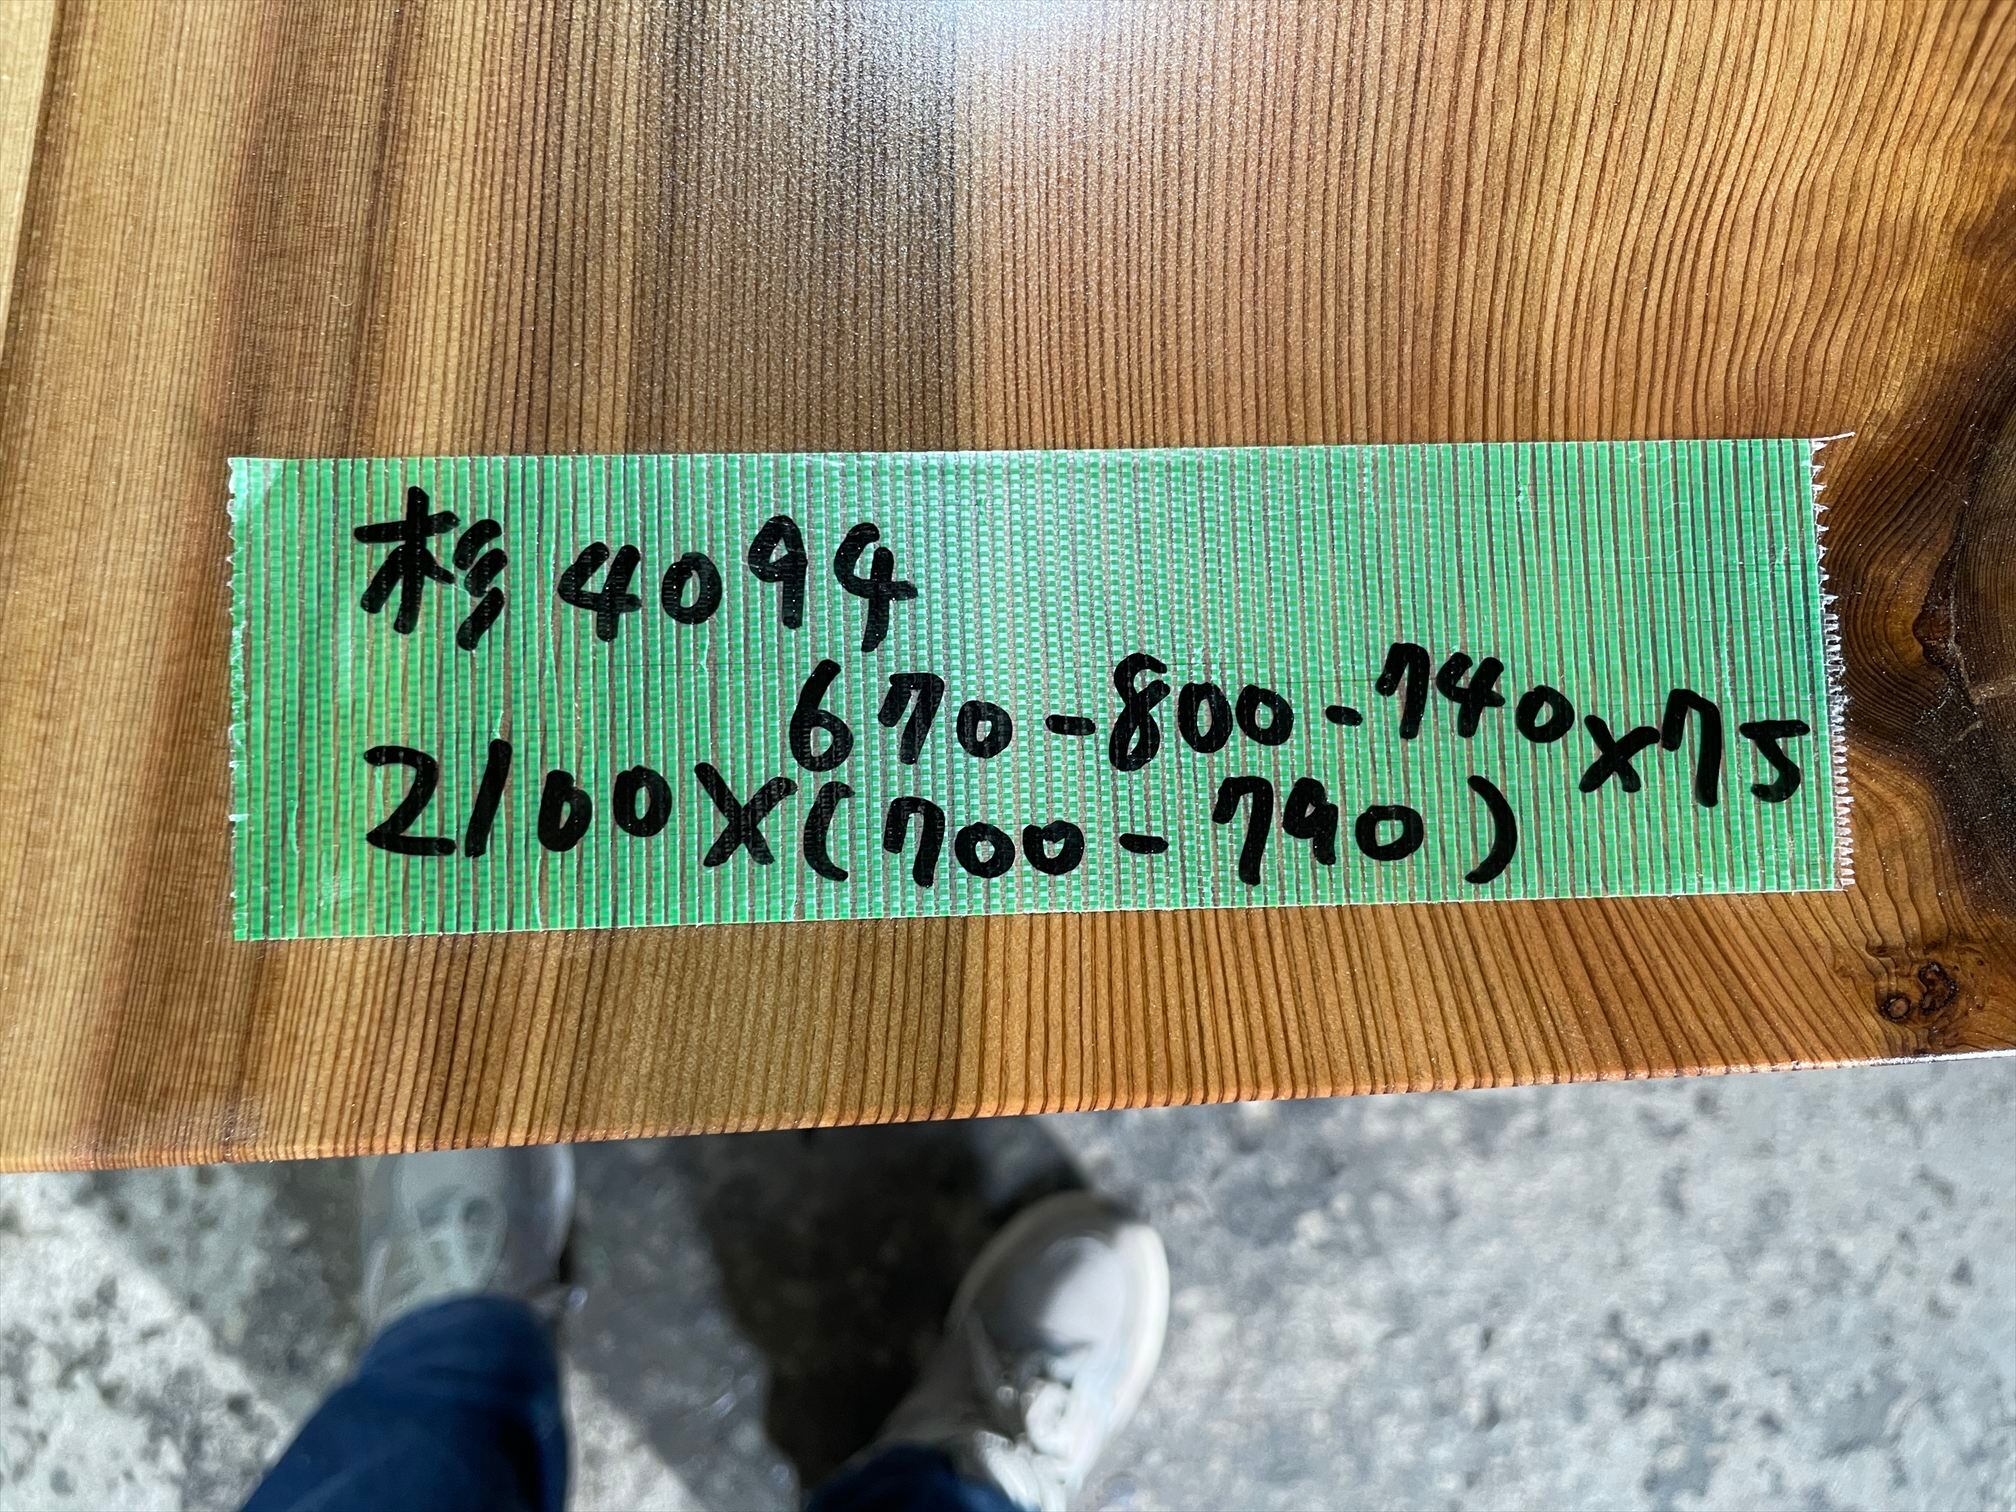 杉 4094
670-800-740
2100×(700-790)×75